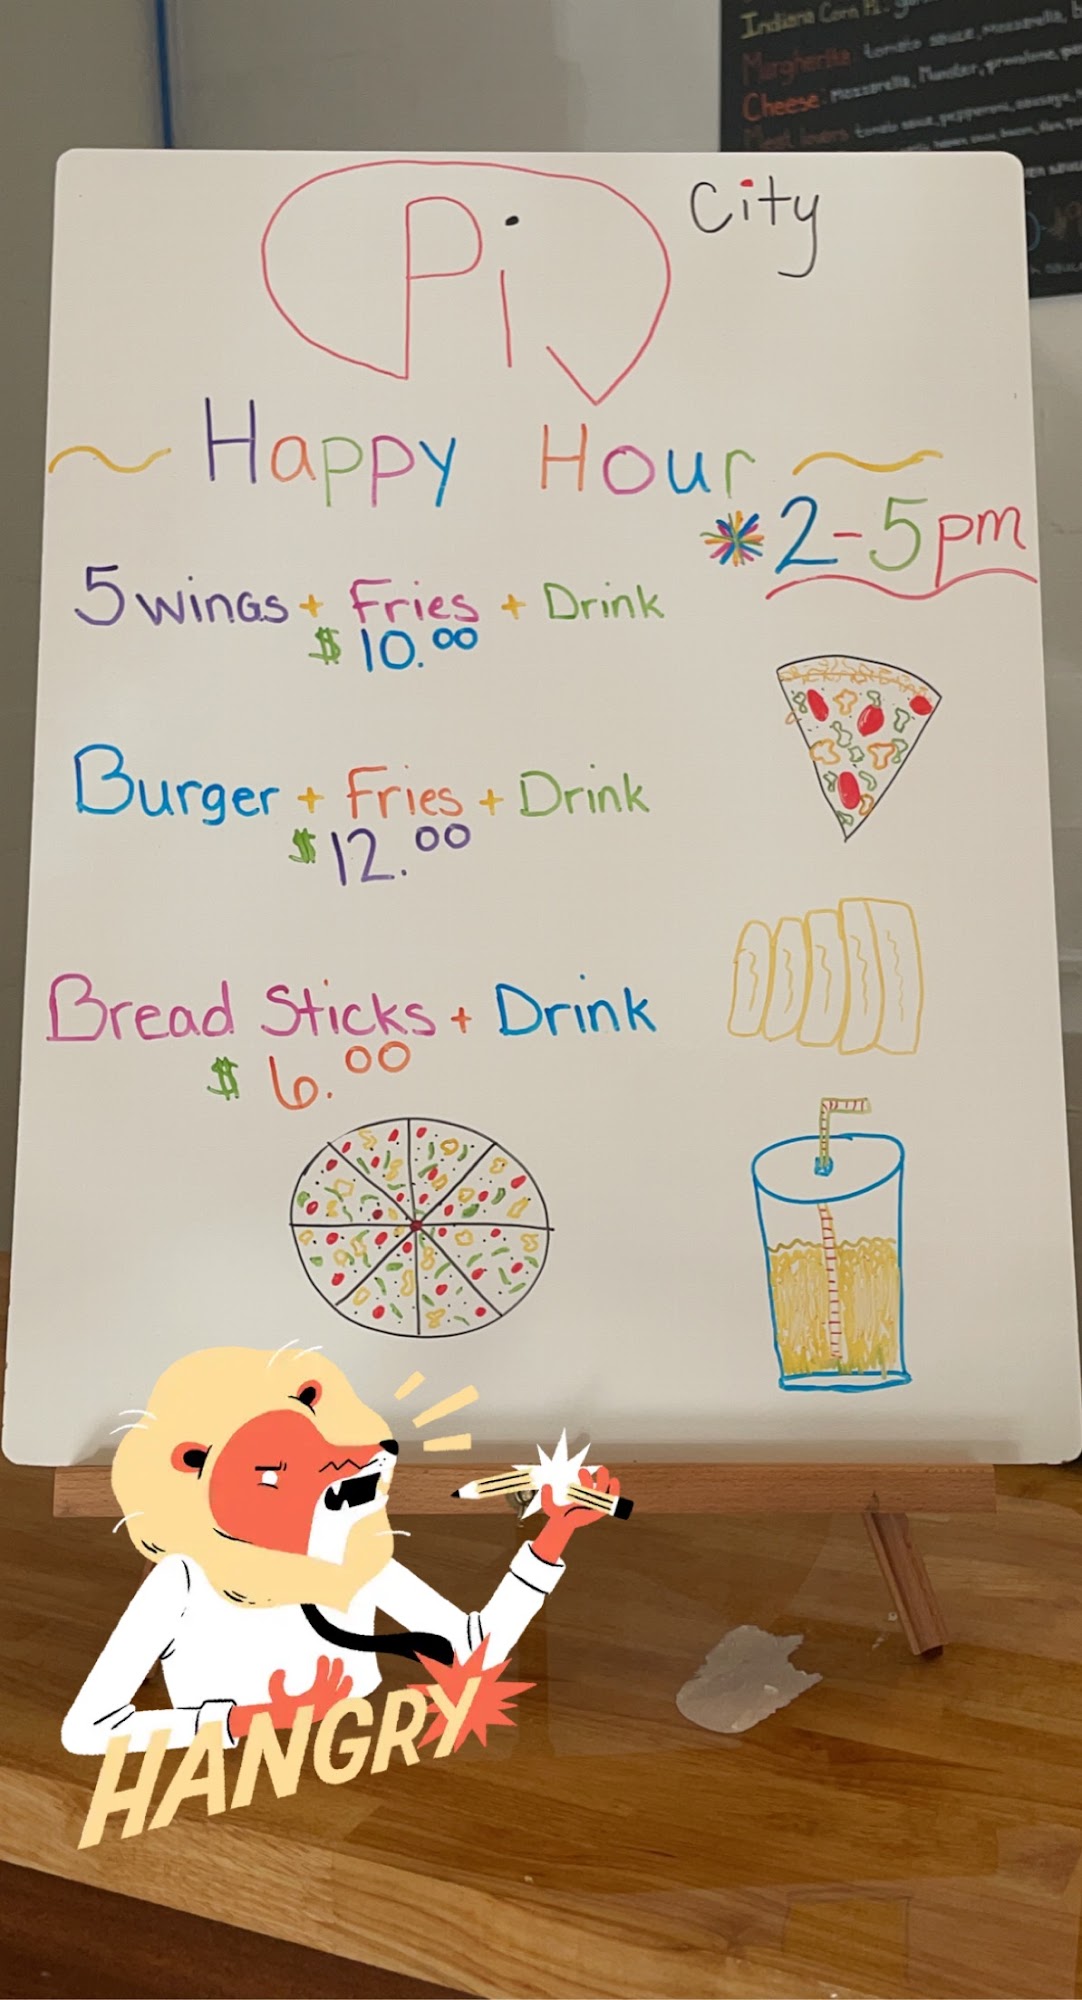 Indiana Corn Pi:
Margherita: tomato sauce, mozzarella,
Cheese: mozzarella, Munster, provolone,
Meat lovers tomato sauce, pepperoni, sausage,
Pi City
~ Happy Hour ~
* 2-5pm
5 wings + Fries + Drink
$ 10.00
Burger + Fries + Drink
$ 12.00
Bread Sticks + Drink
$ 6.00
HANGRY